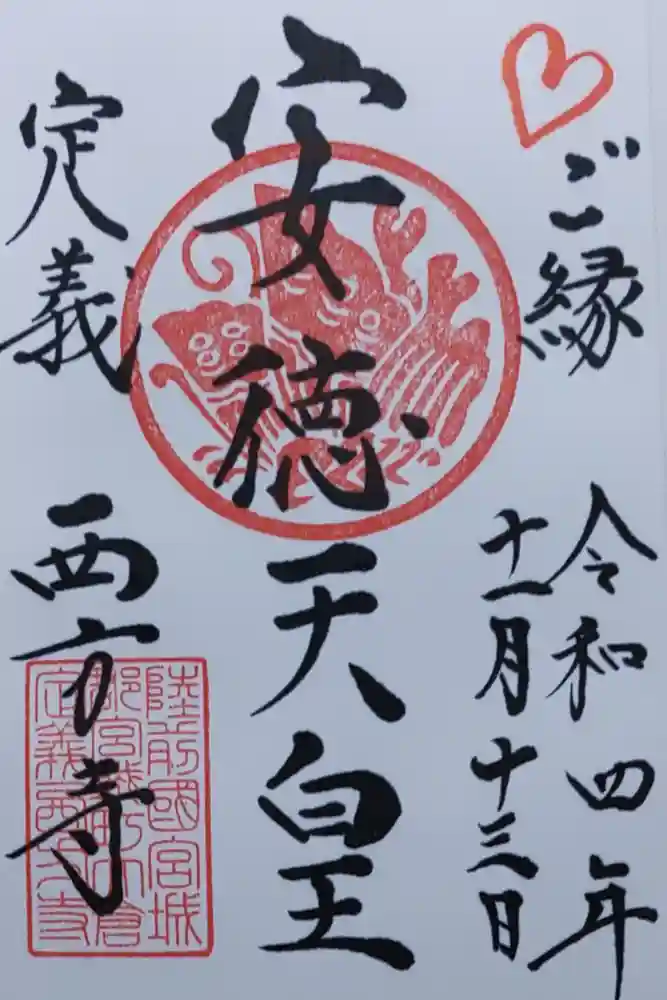 ご縁
令和四年
十一月十三日
安徳天皇
定義
西方寺
陸前國宮城
定義西方寺